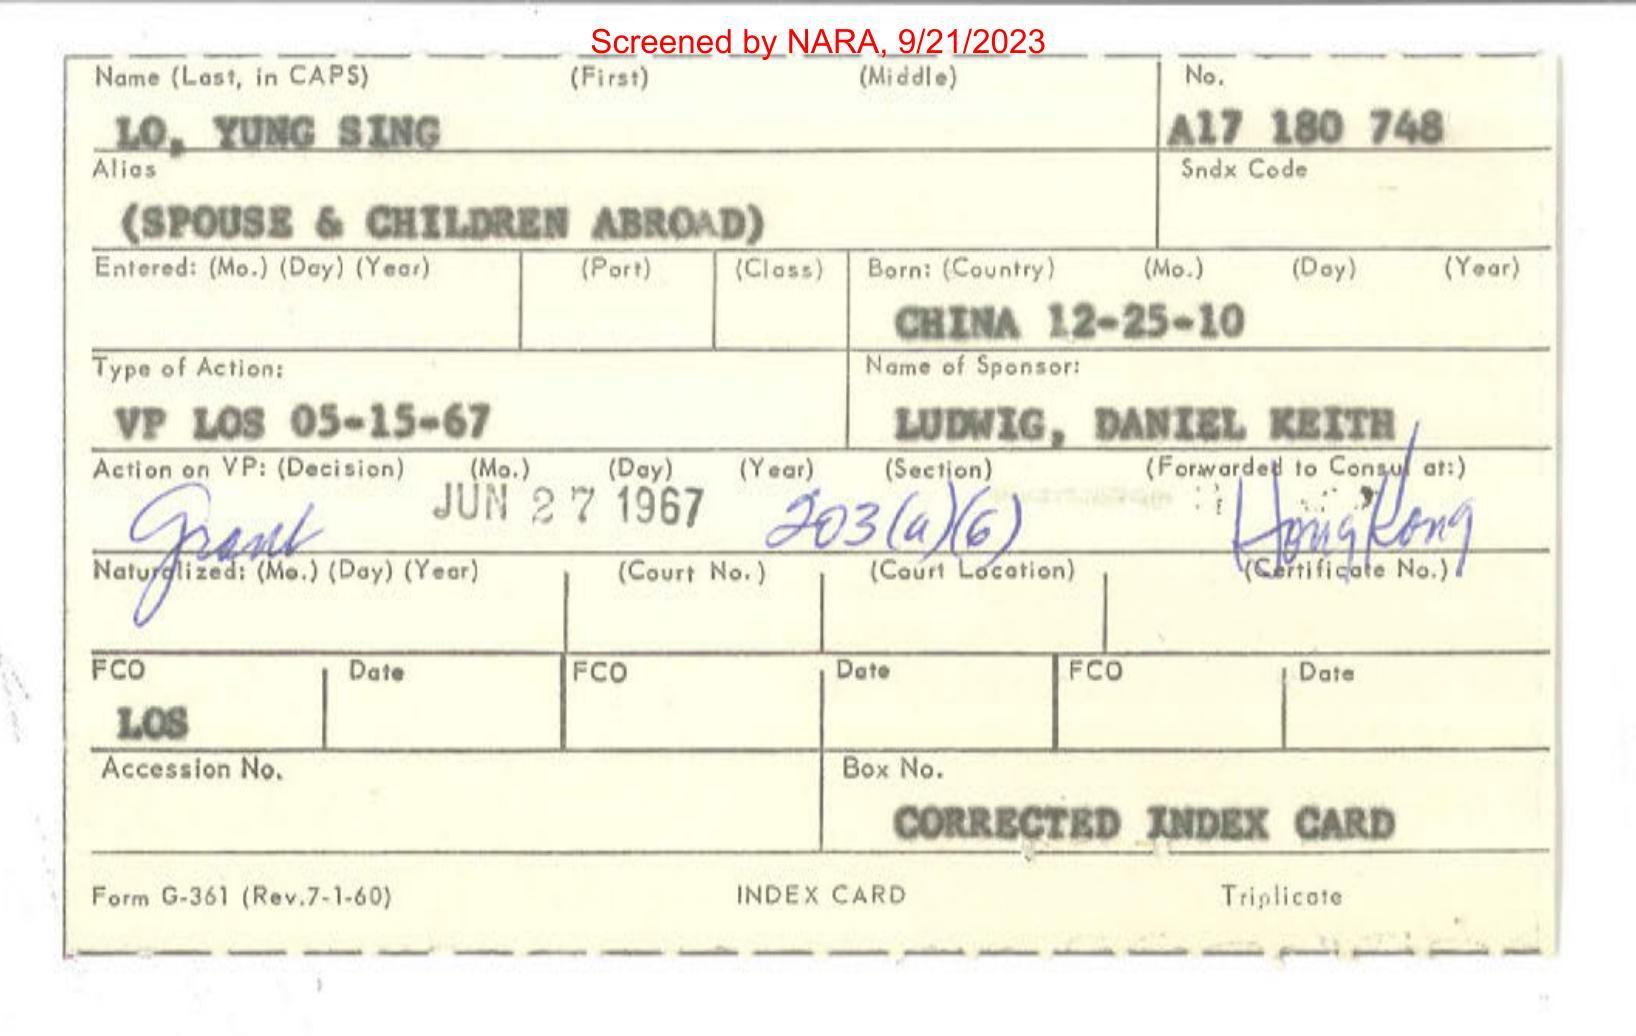 Screened by NARA, 9/21/2023
Name (Last, in CAPS) (First) (Middle) No.
LO, YUNG SING A17 180 748
Alias Sndx Code
(SPOUSE & CHILDREN ABROAD)
Entered: (Mo.) (Day) (Year) (Port) (Class) Born: (Country) (Mo.) (Day) (Year)
CHINA 12-25-10
Type of Action: Name of Sponsor:
VP LOS 05-15-67 LUDWIG, DANIEL KEITH
Action on VP: (Decision) (Mo.) (Day) (Year) (Section) (Forwarded to Consul at:)
Grant JUN 27 1967 203(a)(6) Hong Kong
Naturalized: (Mo.) (Day) (Year) (Court No.) (Court Location) (Certificate No.)
FCO Date FCO Date FCO Date
LOS
Accession No. Box No.
CORRECTED INDEX CARD
Form G-361 (Rev.7-1-60) INDEX CARD Triplicate